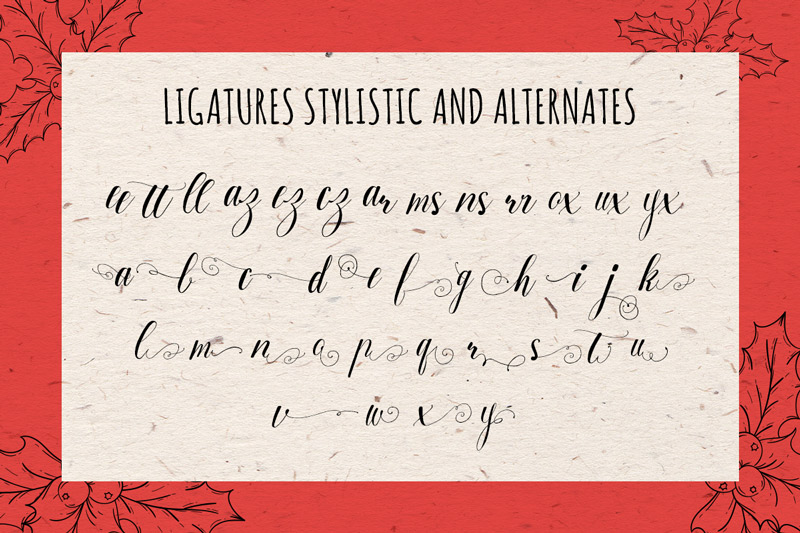 LIGATURES STYLISTIC AND ALTERNATES
ee tt ll az ez cz ar ms ns rr ox ux yx
a b c d e f g h i j k
l m n o p q r s t u
v w x y